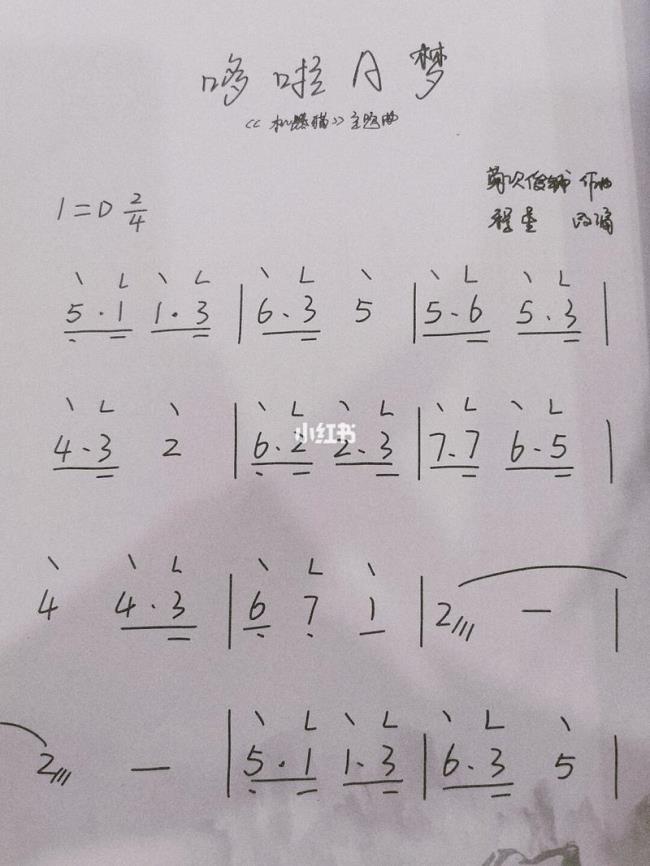 哆啦A梦
《机器猫》主题曲
菊次俊辅 作曲
1=D 2/4
程奎 改编
5·1 1·3 | 6·3 5 | 5·6 5·3 |
4·3 2 | 6·2 2·3 | 7·7 6·5 |
小红书
4 4·3 | 6 7 1 | 2/// — |
2/// — | 5·1 1·3 | 6·3 5 |